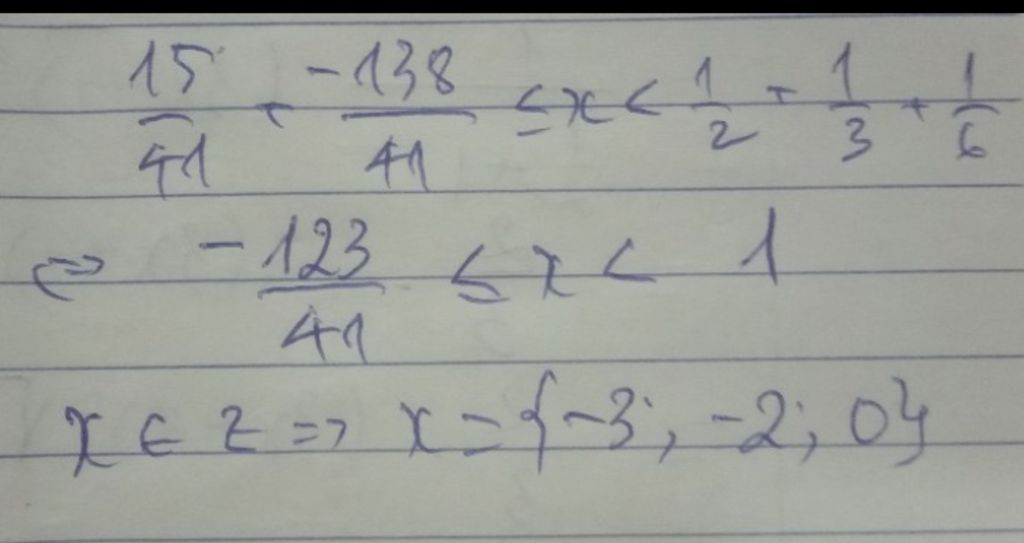 15/41 + -138/41 ≤ x < 1/2 + 1/3 + 1/6
⇔ -123/41 ≤ x < 1
x ∈ Z => x = {-3; -2; 0}